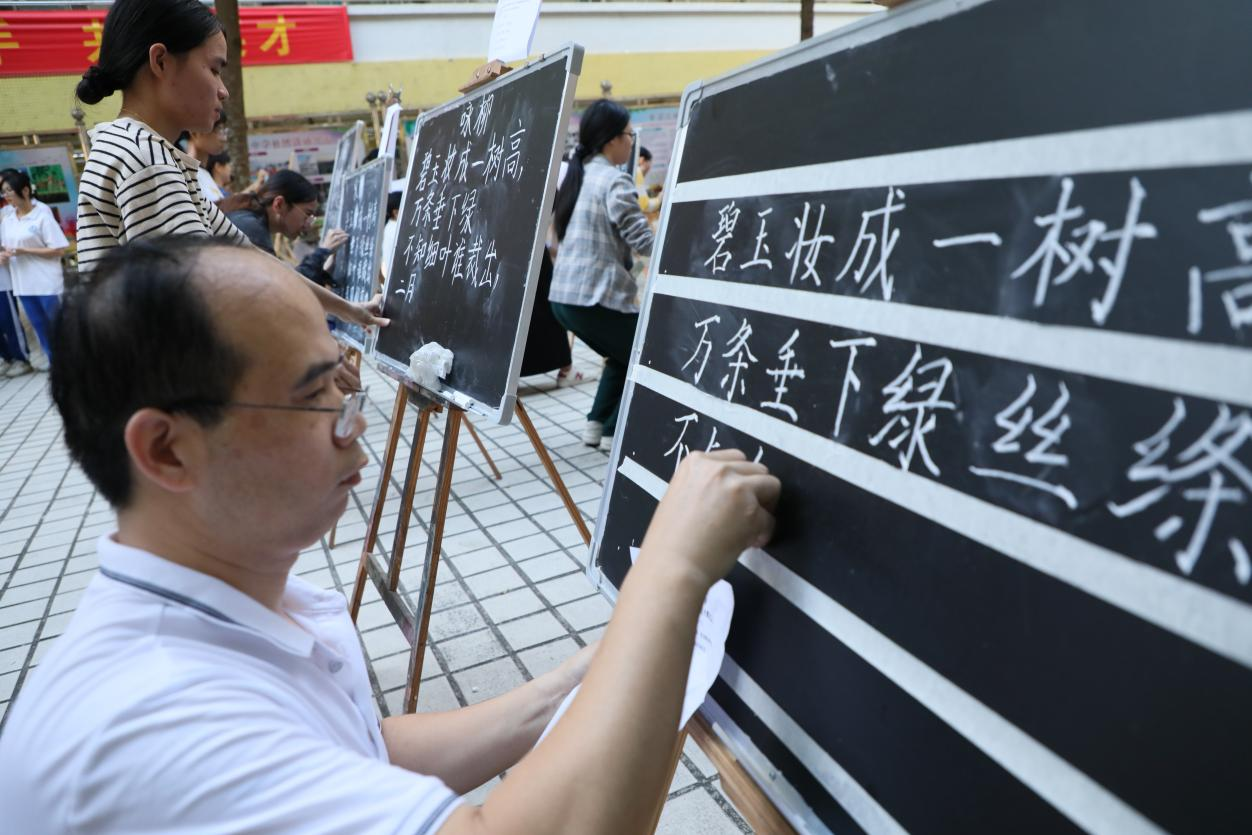 才
咏柳
碧玉妆成一树高,
万条垂下绿
不知细叶谁裁出,
二月
碧玉妆成一树高
万条垂下绿丝绦
不知